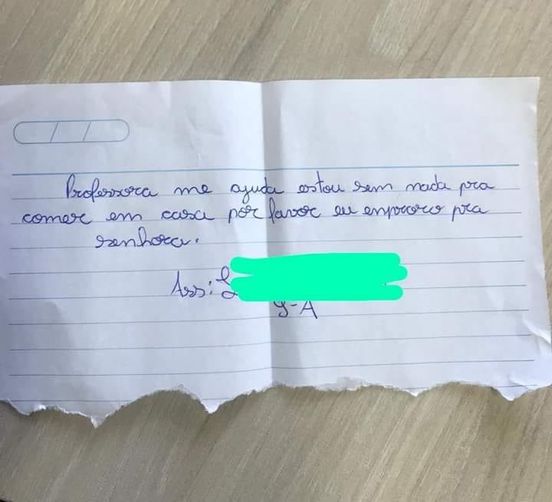 Professora me ajuda estou sem nada pra
comer em casa por favor eu emproro pra
senhora.
Ass:
9-A